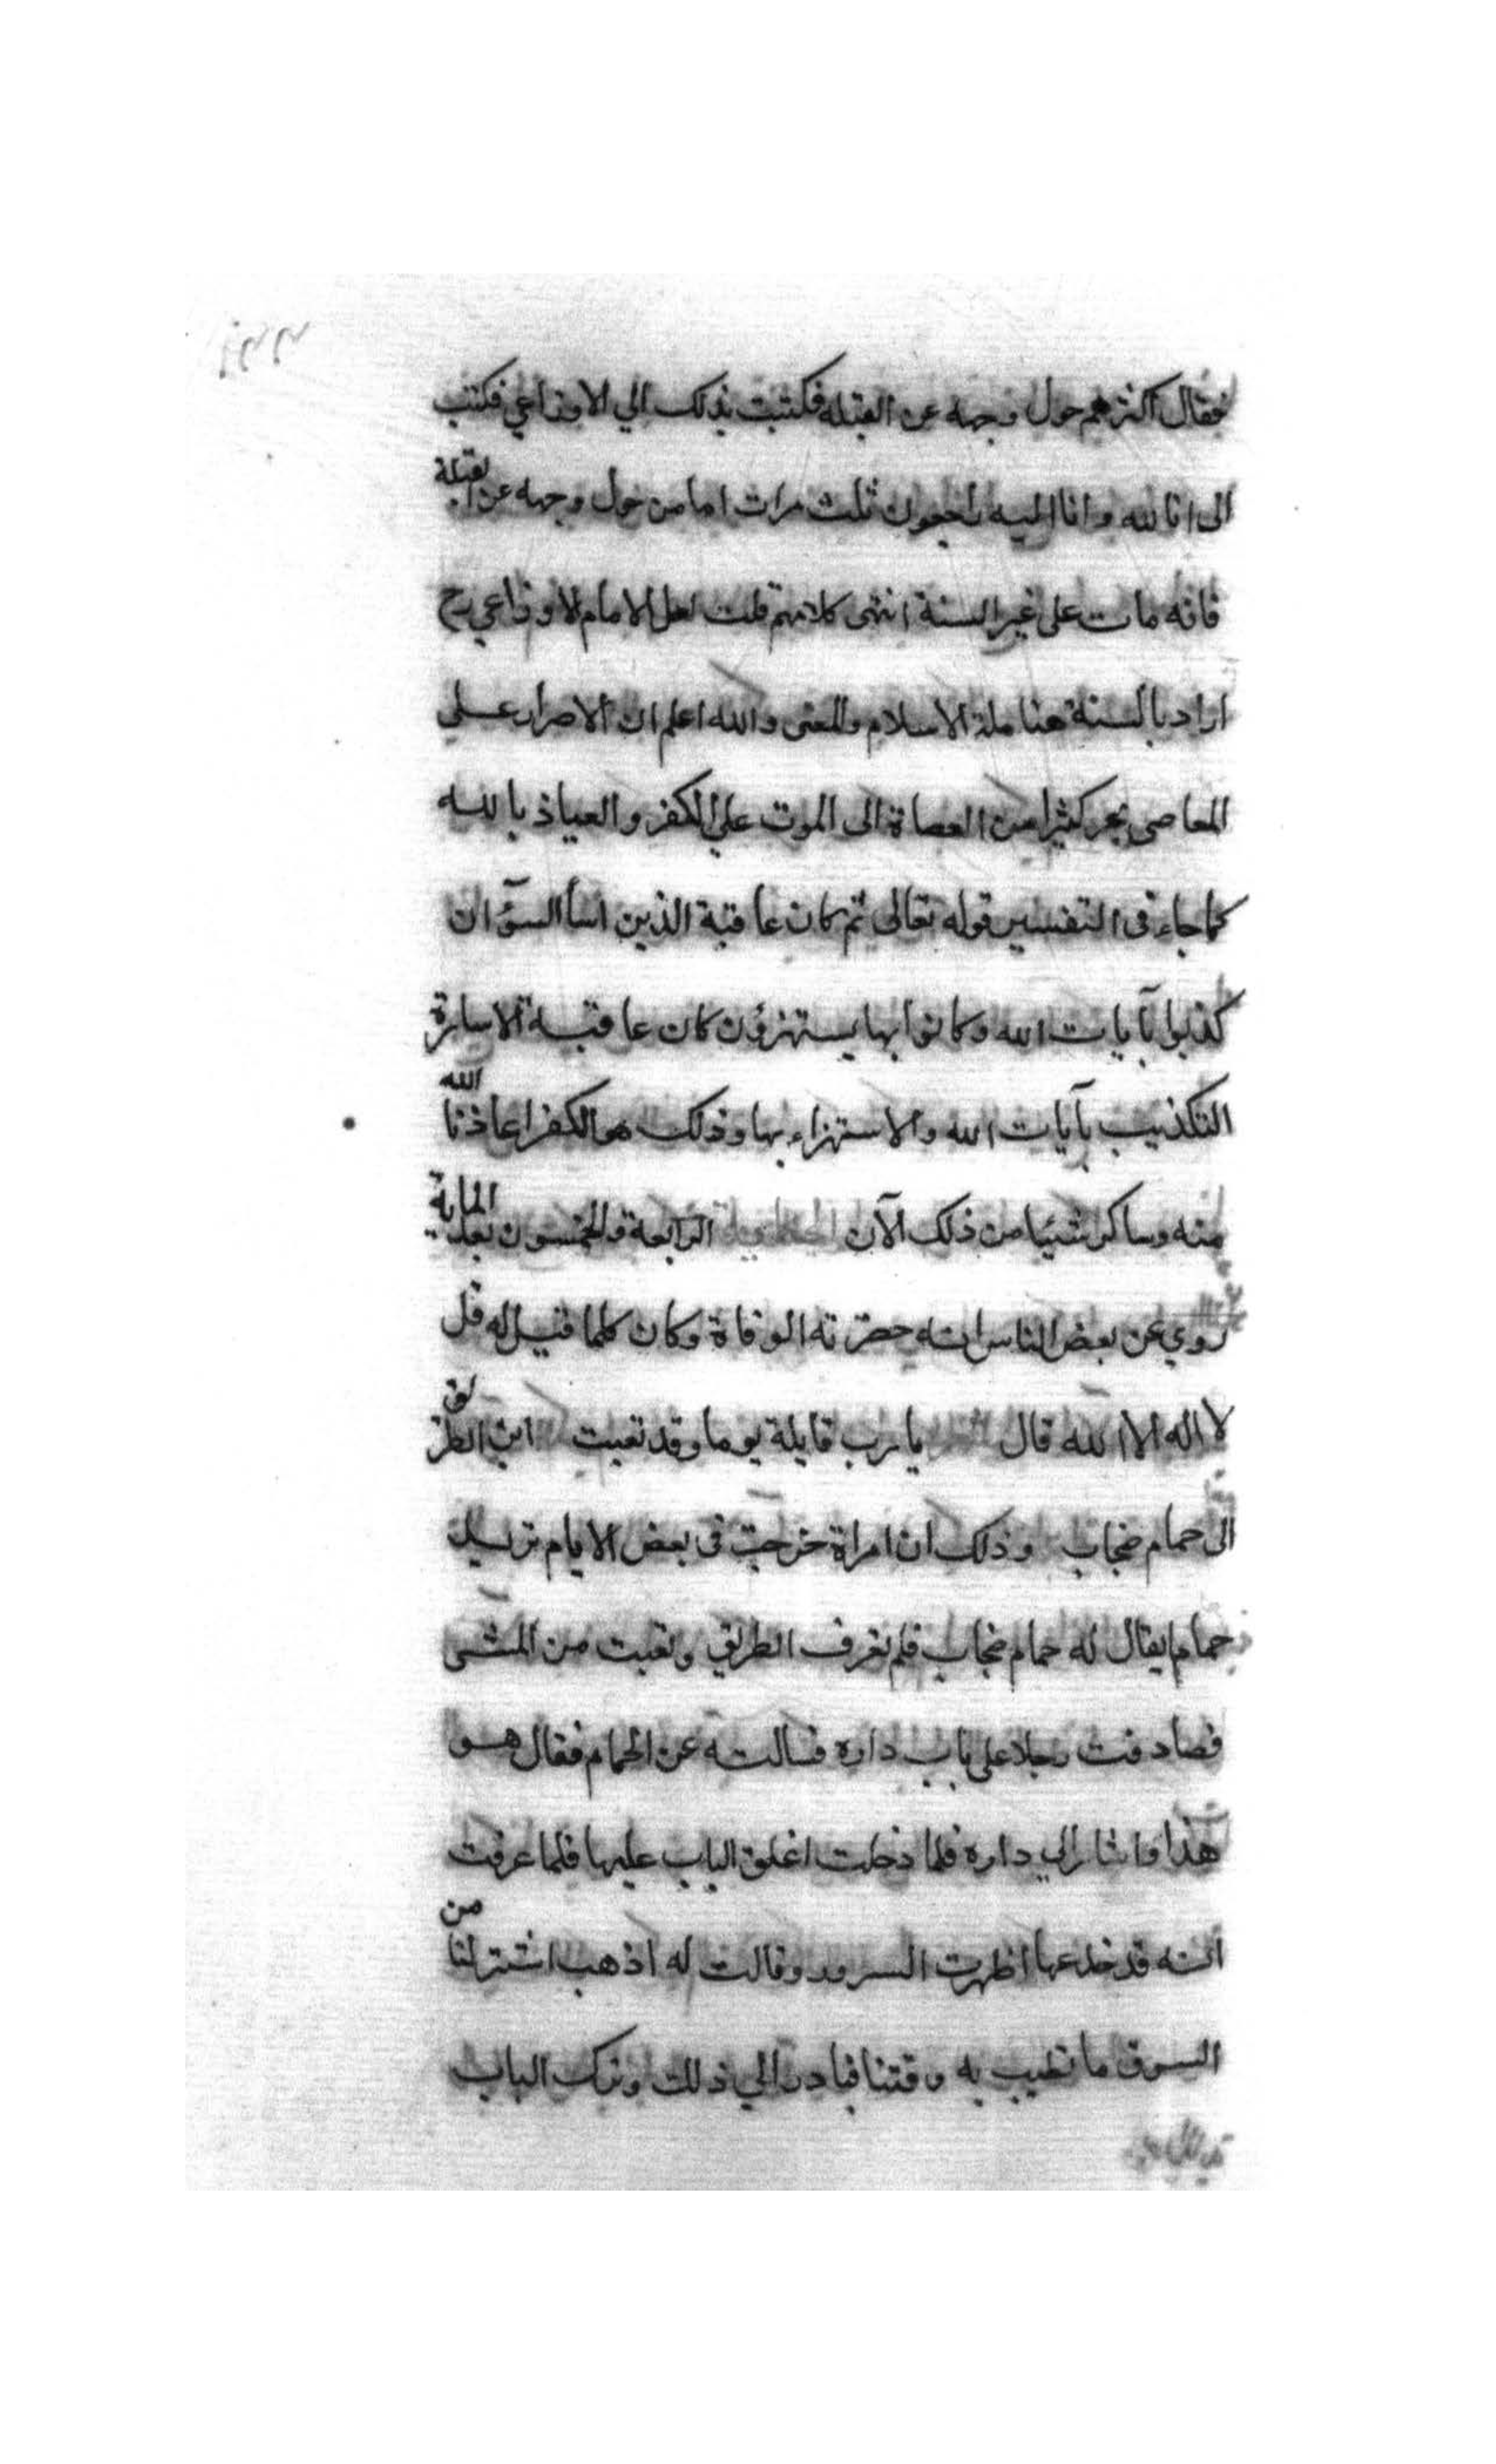 فقال اكثرهم حول وجهه عن القبلة فكتبت بذلك الي الاوزاعي فكتب
الى انا لله وانا اليه راجعون ثلث مرات اما من حول وجهه عن القبلة
فانه مات على غير السنة انتهى كلامهم قلت لعل الامام الاوزاعي رح
اراد بالسنة هنا ملة الاسلام والمعنى والله اعلم ان الاصرار على
المعاصي يجر كثيرا من العصاة الى الموت علي الكفر والعياذ بالله
كما جاء في التفسير قوله تعالى ثم كان عاقبة الذين اساأ السوٓأ ان
كذبوا بآيات الله وكانوا بها يستهزؤن كان عاقبة الاساءة
التكذيب بآيات الله والاستهزاء بها وذلك هو الكفر اعاذنا الله
منه وساذكر شيئا من ذلك الآن الحكاية الرابعة والخمسون بعد الماية
روي عن بعض الناس انه حضرته الوفاة وكان كلما قيل له قل
لا اله الا الله قال يا رب قايلة يوما وقد تعبت اين الطريق
الى حمام منجاب وذلك ان امراة خرجت في بعض الايام تريد
حماما يقال له حمام منجاب فلم تعرف الطريق وتعبت من المشى
فصادفت رجلا على باب داره فسالته عن الحمام فقال هو
هذا واشار الي داره فلما دخلت اغلق الباب عليها فلما عرفت
انه قد خدعها اظهرت السرور وقالت له اذهب اشتر لنا من
السوق ما نطيب به وقتنا فبادر الي ذلك وترك الباب